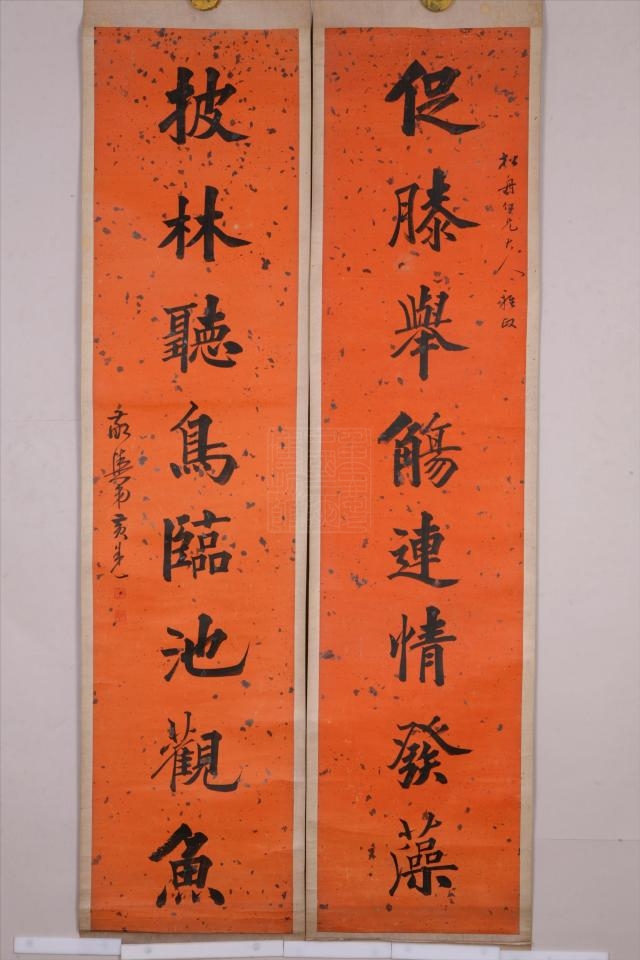 松舟仁兄大人雅政
促膝舉觴連情發藻
披林聽鳥臨池觀魚